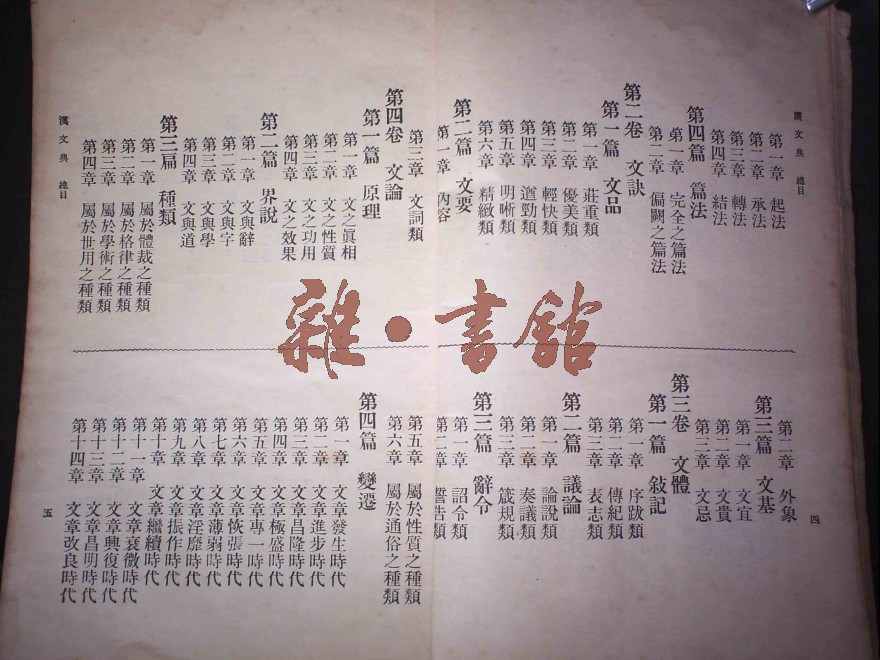 漢文典 總目
第一章 起法
第二章 承法
第三章 轉法
第四章 結法
第四篇 篇法
第一章 完全之篇法
第二章 偏闕之篇法
第二卷 文訣
第一篇 文品
第一章 莊重類
第二章 優美類
第三章 輕快類
第四章 遒勁類
第五章 明晰類
第六章 精緻類
第二篇 文要
第一章 內容
第二章 外象
第三篇 文基
第一章 文宜
第二章 文貴
第三章 文忌
第三卷 文體
第一篇 敍記
第一章 序跋類
第二章 傳紀類
第三章 表志類
第二篇 議論
第一章 論說類
第二章 奏議類
第三章 箴規類
第三篇 辭令
第一章 詔令類
第二章 誓告類
四
第三章 文詞類
第四卷 文論
第一篇 原理
第一章 文之眞相
第二章 文之性質
第三章 文之功用
第四章 文之效果
第二篇 界說
第一章 文與辭
第二章 文與字
第三章 文與學
第四章 文與道
第三篇 種類
第一章 屬於體裁之種類
第二章 屬於格律之種類
第三章 屬於學術之種類
第四章 屬於世用之種類
漢文典 總目
第五章 屬於性質之種類
第六章 屬於通俗之種類
第四篇 變遷
第一章 文章發生時代
第二章 文章進步時代
第三章 文章昌隆時代
第四章 文章極盛時代
第五章 文章專一時代
第六章 文章恢張時代
第七章 文章薄弱時代
第八章 文章淫靡時代
第九章 文章振作時代
第十章 文章繼續時代
第十一章 文章衰微時代
第十二章 文章興復時代
第十三章 文章昌明時代
第十四章 文章改良時代
五
雜·書館